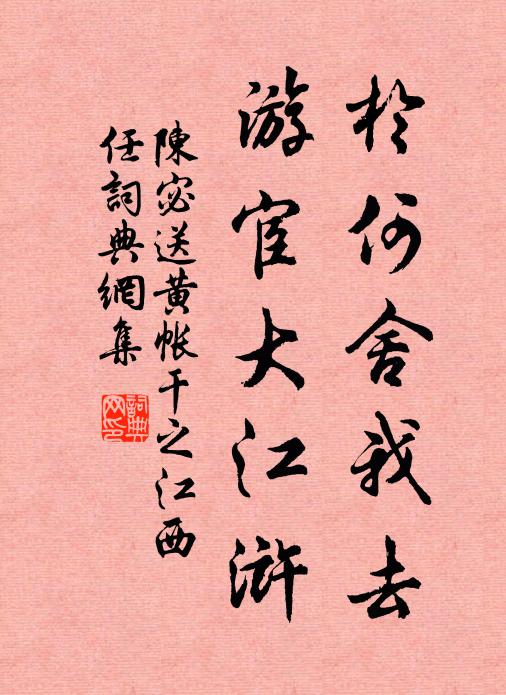 於何舍我去
游宦大江滸
陳宓送黄帳干之江西
任詞典網集
詞典网印